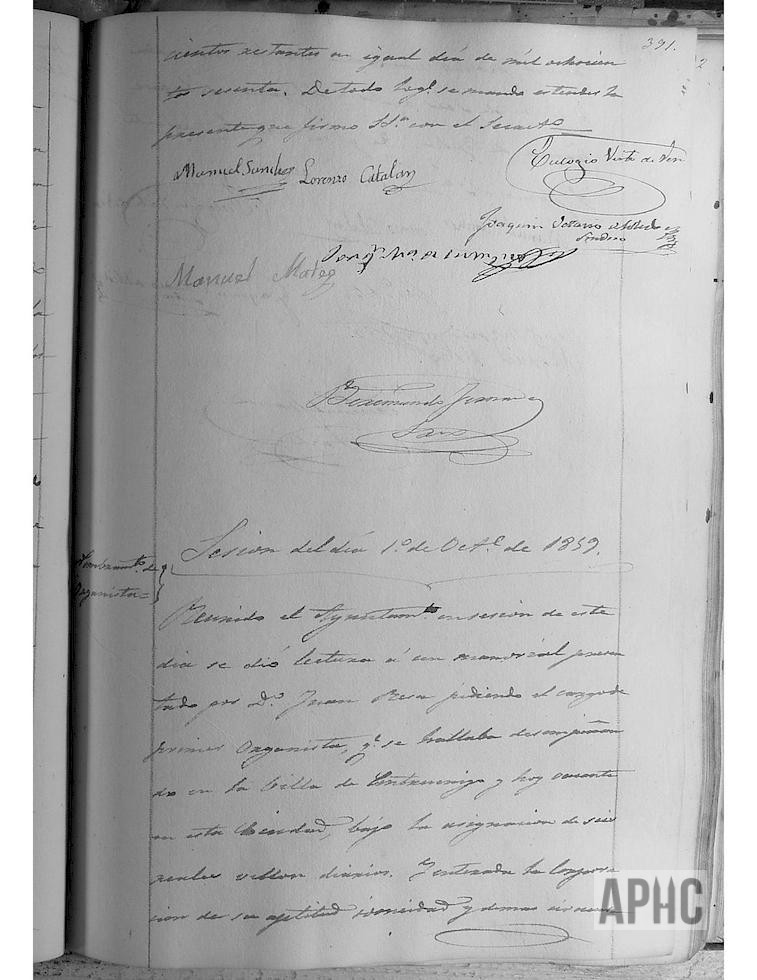 391.
cientos restantes en igual día de mil ochocien
tos sesenta. De todo lo q.l se manda estender la
presente que firmo S.S.ª con el Secret.º
Manuel Sanchez Lorenzo Catalan
Eulogio
Joaquin
Sindico
Manuel Mateo
Sesion del día 1.º de Oct.e de 1859.
Nombramt.º de
Organista=
Reunido el Ayuntam.to en sesion de este
día se dió lectura á un memorial presen
tado por D.n Juan Resa pidiendo el cargo de
primer Organista, q.e se hallaba desempeñan
do en la Villa de Cintruenigo y hoy vacante
en esta Ciudad, bajo la asignacion de seis
reales vellon diarios. Y enterada la Corpora
cion de su aptitud idoneidad y demas circuns
APHC